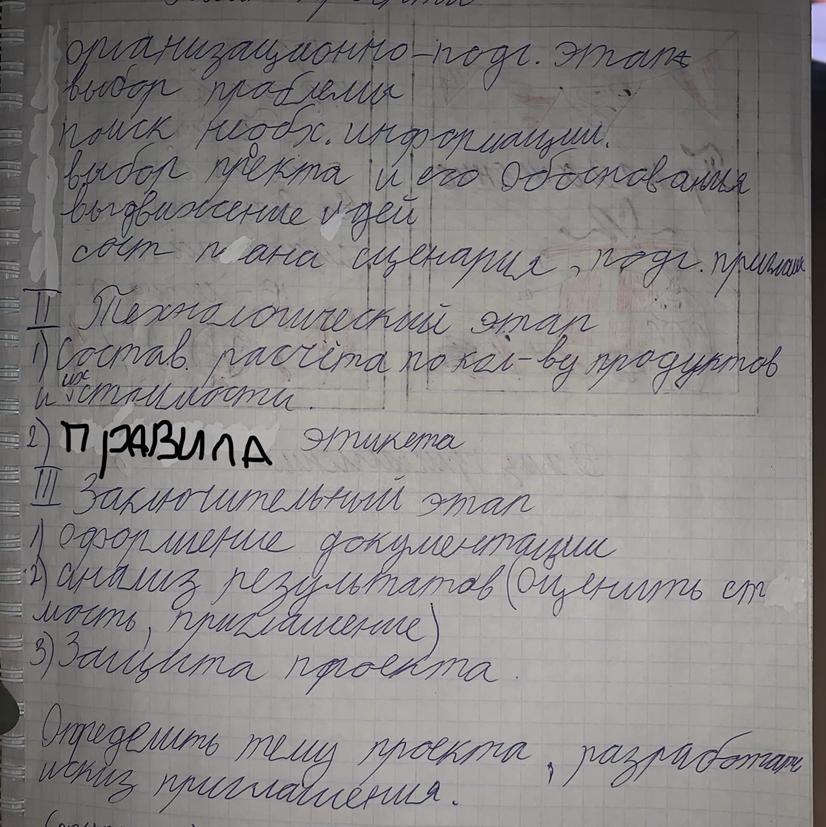 организационно-подг. этап
выбор проблемы
поиск необх. информации.
выбор проекта и его Обоснования
выдвижение идей
сост плана сценария, подг. приглаш
II Технологический этап
1) Состав. расчёта по кол-ву продуктов
и их стоимости.
2) ПРАВИЛА этикета
III Заключительный этап
1) оформление документации
2) анализ результатов (Оценить ст
мость, приглашение)
3) Защита проекта.
Определить тему проекта, разработать
искиз приглашения.